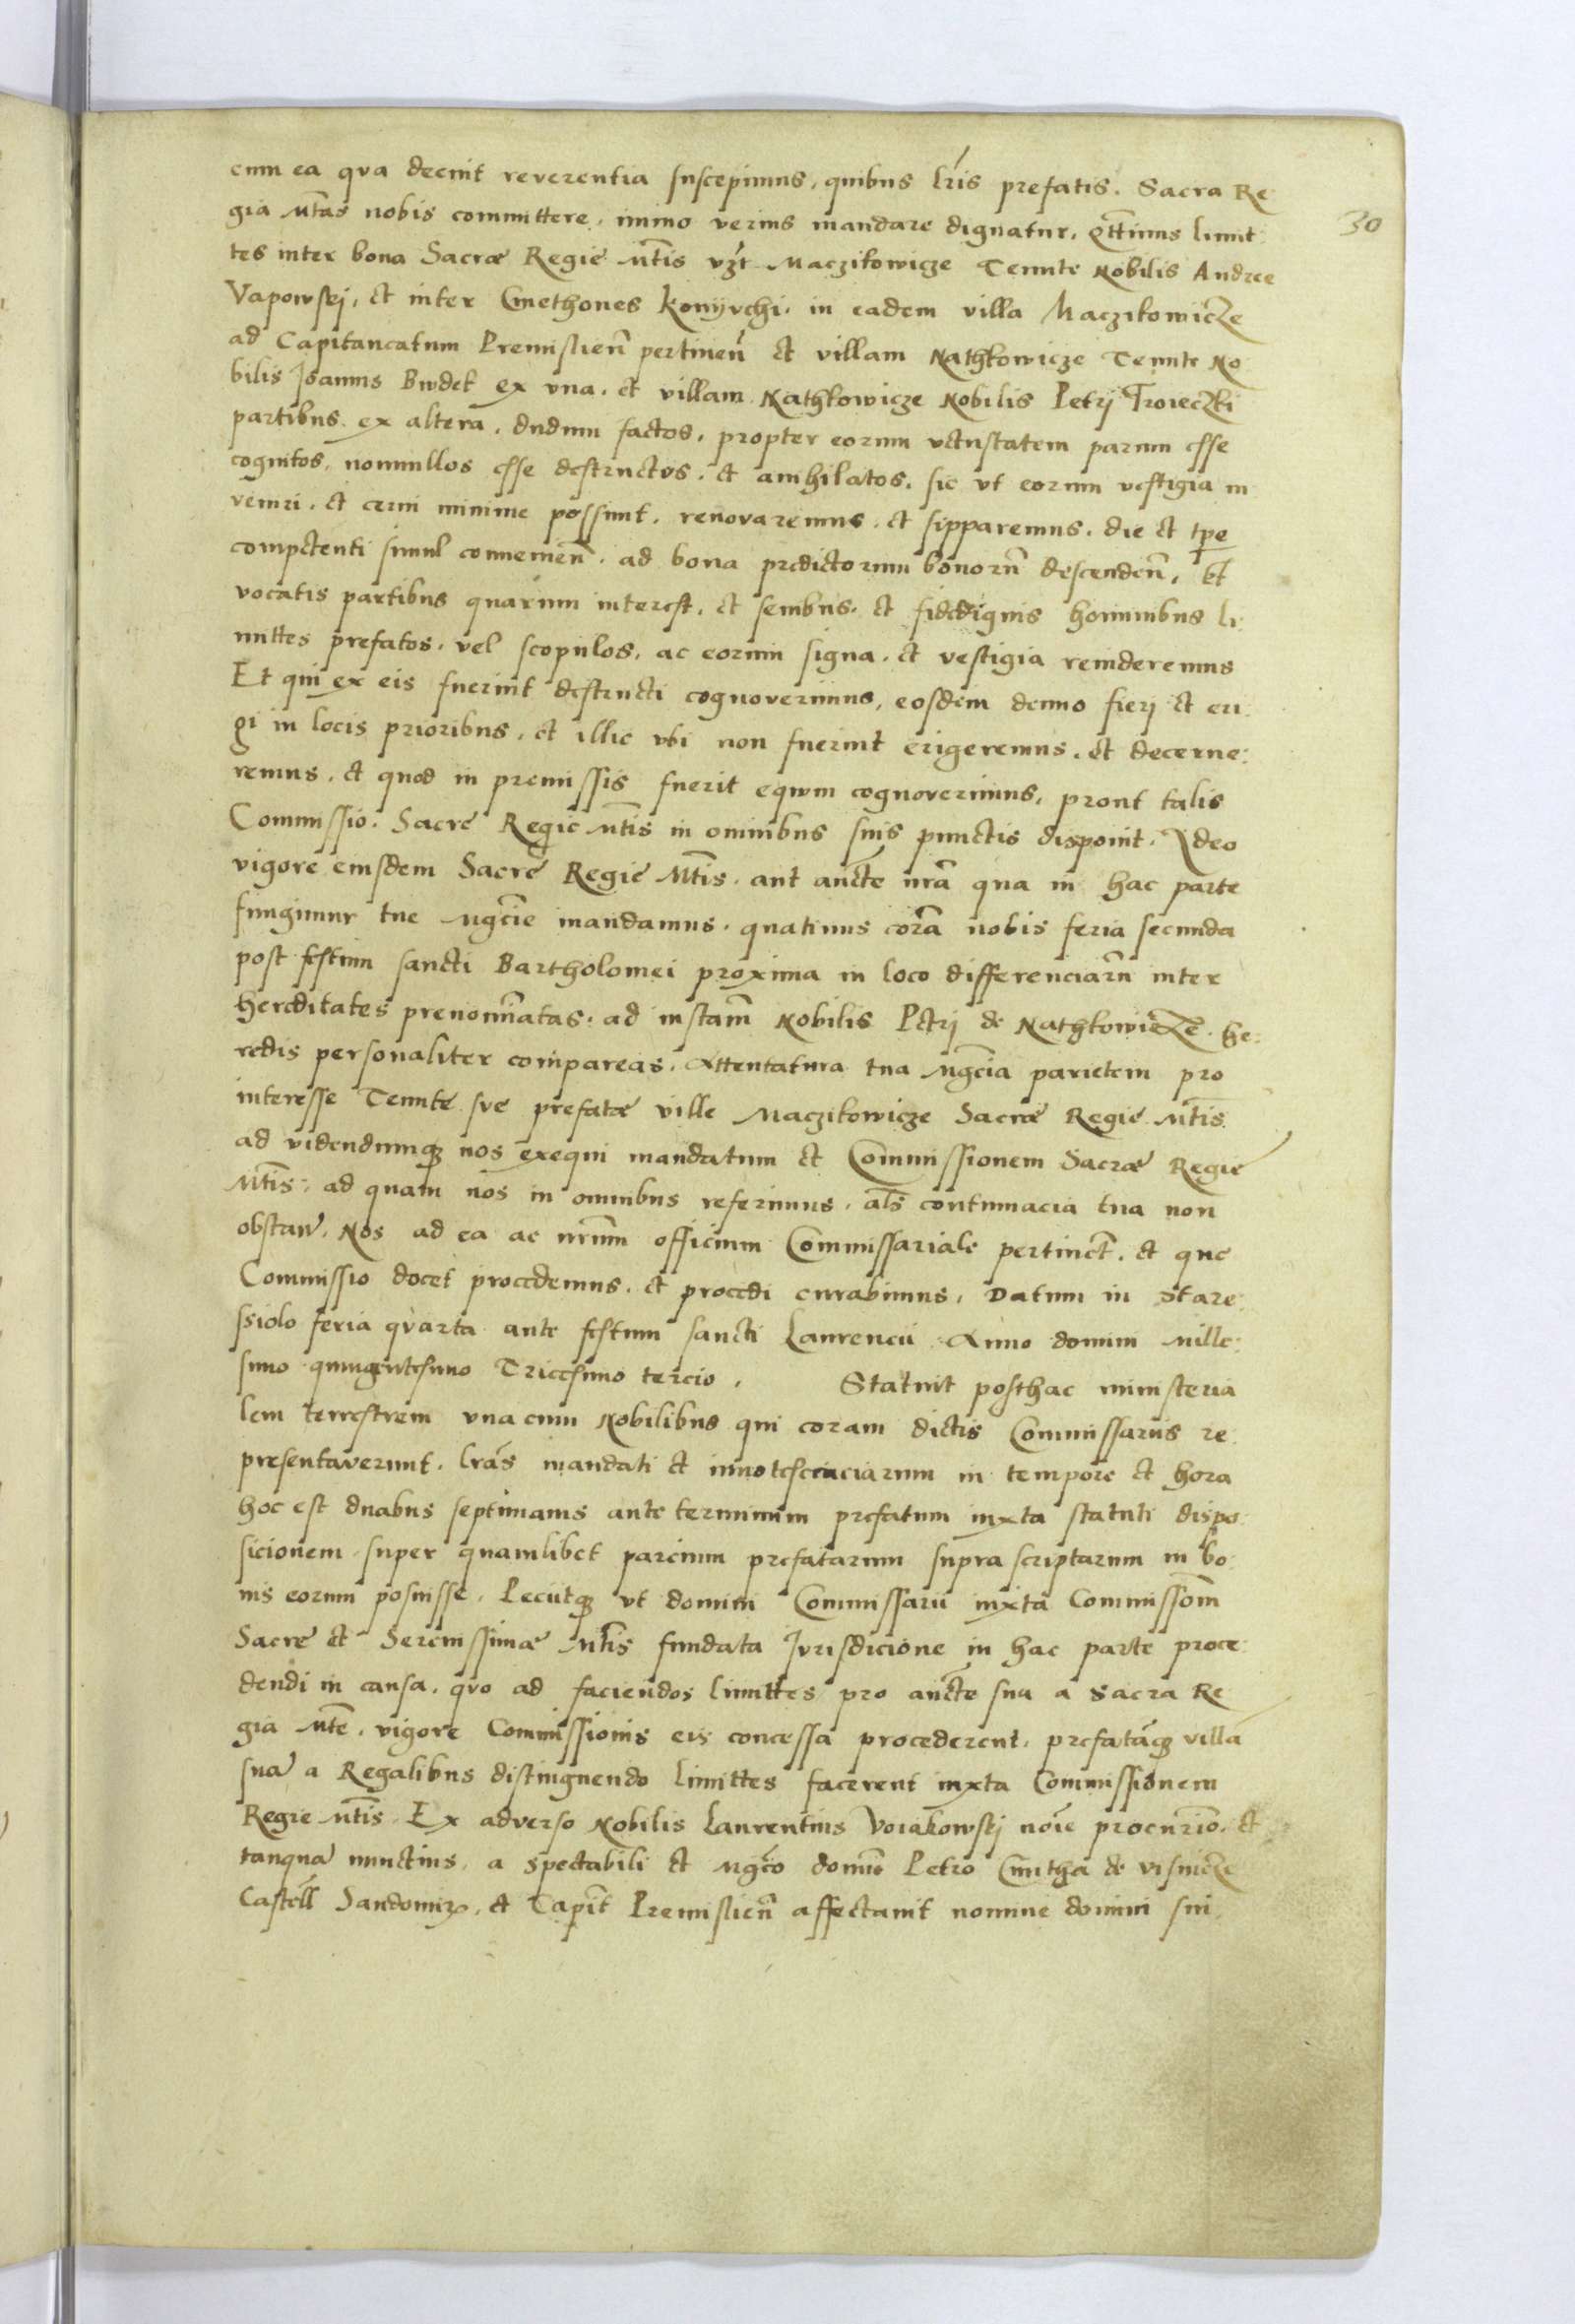 30
cum ea qva decuit reverentia suscepimus, quibus lr̃is prefatis. Sacra Re
gia Mtas nobis committere, immo verius mandare dignatur, q̃ttinus limit
tes inter bona Sacræ Regie Mtis vzt Maczikowicze Tenute Nobilis Andree
Vapowsej, et inter Cmethones konijvchi, in eadem villa Maczikowicze
ad Capitaneatum Premislieñ pertineñ et villam Nathkowicze Tenute No
bilis Joannis Bwdek ex vna, et villam Nathkowicze Nobilis Petrj Troieczki
partibus ex altera, dudum factos, propter eorum vetustatem parum esse
cognitos, nonnullos esse destructos, et anihilatos, sic vt eorum vestigia in
veniri, et cerni minime possunt, renovaremus, et sipparemus, die et tpe
competenti simul convenieñ, ad bona predictorum bonorũ descendeñ,
vocatis partibus quarum interest, et senibus, et fidedignis hominibus li
mittes prefatos, vel scopulos, ac eorum signa, et vestigia revideremus
Et qui ex eis fuerint destructi cognoverimus, eosdem denuo fierj et eri
gi in locis prioribus, et illic vbi non fuerint erigeremus, et decerne
remus, et quod in premissis fuerit eqwm cognoverimus, prout talis
Commissio Sacre Regie Mtis in omnibus suis punctis disponit, Ideo
vigore eiusdem Sacre Regie Mtis, aut aucte nrã qua in hac parte
fungimur tue Mgcie mandamus, quatinus corã nobis feria secunda
post festum sancti Bartholomei proxima in loco differenciarũ inter
hereditates prenomĩatas, ad instam̃ Nobilis Petrj de Nathkowicze he
redis personaliter compareas, Attentatura tua Mgcia parietem pro
interesse Tenute sve prefatæ ville Maczikowicze Sacræ Regie Mtis
ad videndumqz nos exequi mandatum et Commissionem Sacræ Regie
Mtis, ad quam nos in omnibus referimus, als contumacia tua non
obstañ, Nos ad ea ac nrũm officium Commissariale pertinet, et que
Commissio docet procedemus, et procedi curabimus, Datum in Stare
ssiolo feria qvarta ante festum sancti Laurencii Anno domini Mille
simo quingentesimo Tricesimo tercio, Statuit posthac ministeria
lem terrestrem vna cum Nobilibus qui coram dictis Commissariis re
presentaverunt, lrãs mandati et innotescenciarum in tempore et hora
hoc est duabus septimanis ante terminum prefatum iuxta statuti dispo
sicionem super quamlibet parcium prefatarum supra scriptarum in bo
nis eorum posuisse, Peciitqz vt domini Commissarii iuxta Commissom̃
Sacre et Serenissimæ Mtis fundata Jvrisdicione in hac parte proce
dendi in causa, qvo ad faciendos limittes pro aucte sua a Sacra Re
gia Mte, vigore Commissionis eis concessa procederent, prefatãqz villã
suã a Regalibus distinguendo limittes facerent iuxta Commissionem
Regie Mtis Ex adverso Nobilis Laurentius Voiakowskj noie procurio, et
tanquã nunctius, a spectabili et Mgco domino Petro Cmitha de Visnicze
Castell Sandomiz, et Capit Premislieñ affectavit nomine domini sui